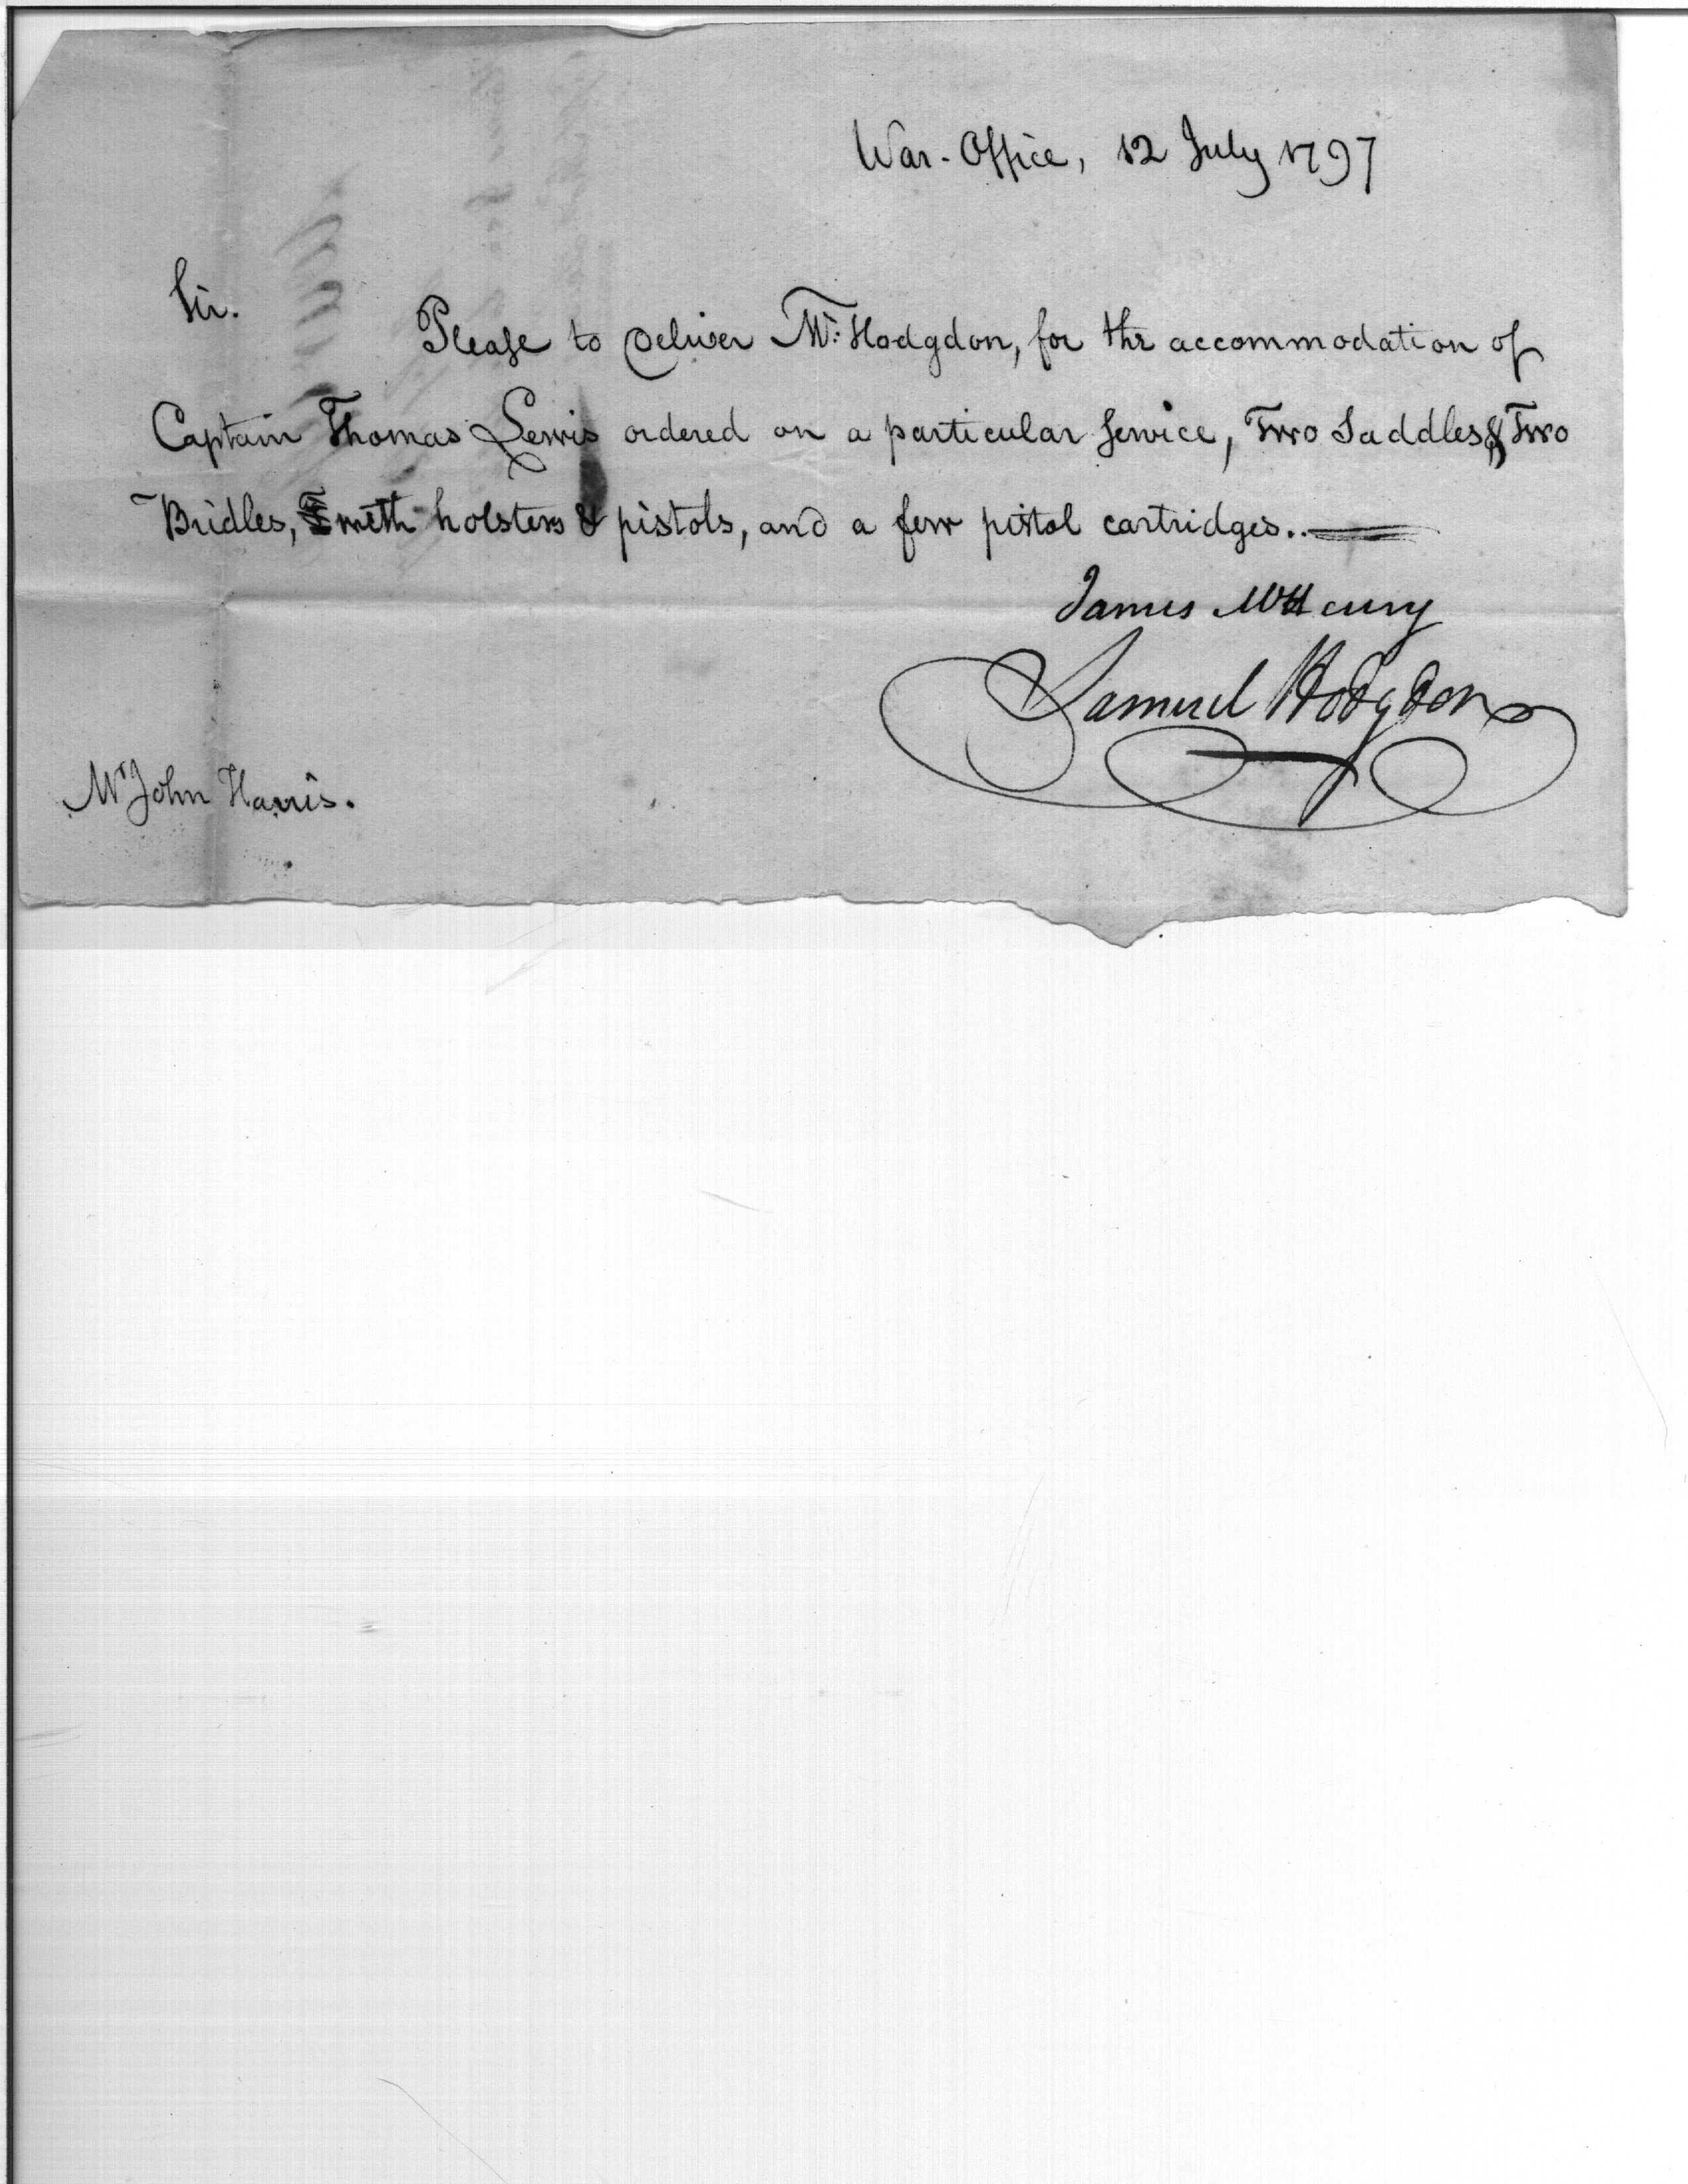 War-Office, 12 July 1797
Sir.
Please to Deliver Mr. Hodgdon, for the accommodation of
Captain Thomas Lewis ordered on a particular Service, Two Saddles & Two
Bridles, with holsters & pistols, and a few pistol cartridges..
James McHenry
Samuel Hodgdon
Mr John Harris.